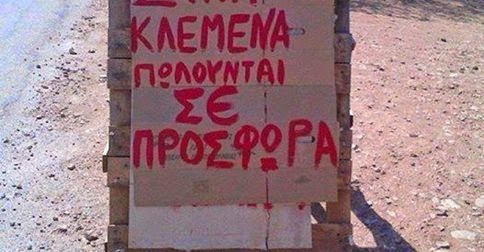 ΚΛΕΜΕΝΑ
ΠΩΛΟΥΝΤΑΙ
ΣΕ
ΠΡΟΣΦΩΡΑ